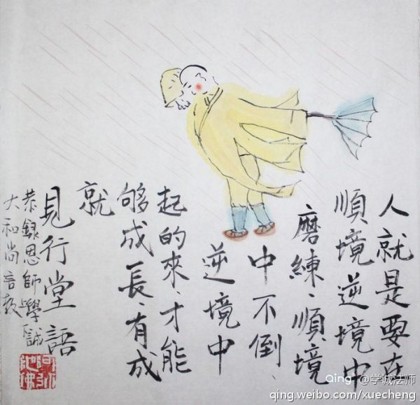 人就是要在
順境逆境中
磨練、順境
中不倒
逆境中
起的來才能
够成長有成
就
見行堂語
恭錄恩師學誠
大和尚言教
Qing @学诚法师
qing.weibo.com/xuecheng